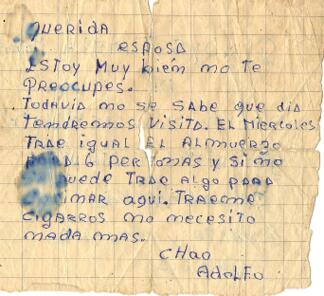 Querida
esposa
Estoy muy bién no te
preocupes.
Todavia no se sabe que dia
tendremos visita. El miercoles
trae igual el almuerzo
6 personas y si no
puede trae algo para
aqui. Traeme
cigarros no necesito
nada mas.
Chao
Adolfo